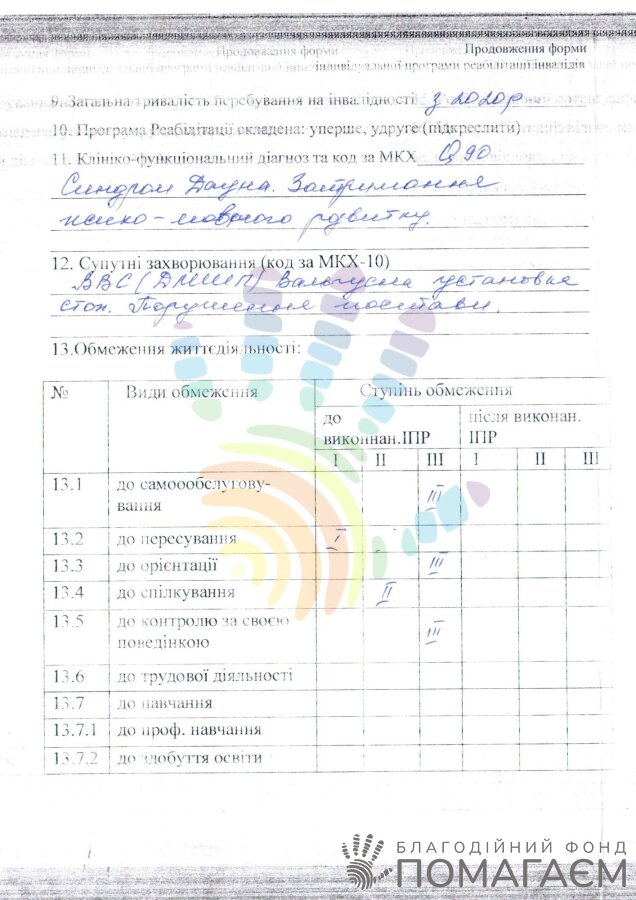 Продовження форми
індивідуальної програми реабілітації інвалідів
9. Загальна тривалість перебування на інвалідності з 2020р
10. Програма Реабілітації складена: уперше, удруге (підкреслити)
11. Клініко-функціональний діагноз та код за МКХ Q90
Синдром Дауна. Затримання
психо-мовного розвитку.
12. Супутні захворювання (код за МКХ-10)
ВВС (ДМШП) Вальгусна установка
стоп. Порушення постави.
13.Обмеження життєдіяльності:
№ Види обмеження Ступінь обмеження
до виконнан.ІПР після виконан. ІПР
I II III I II III
13.1 до самоообслугову-
вання III
13.2 до пересування I
13.3 до орієнтації III
13.4 до спілкування II
13.5 до контролю за своєю
поведінкою III
13.6 до трудової діяльності
13.7 до навчання
13.7.1 до проф. навчання
13.7.2 до здобуття освіти
БЛАГОДІЙНИЙ ФОНД
ПОМАГАЄМ